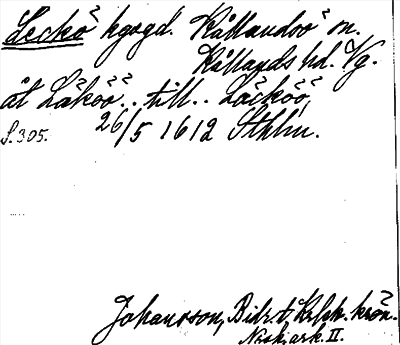 Leckö hgsgd. Kållandsö sn.
Kållands hd. Vg.
åt Läköö.. till.. Läcköö,
S. 305. 26/5 1612 Sthlm.
Johansson, Bidr. t.
Riksark. II.